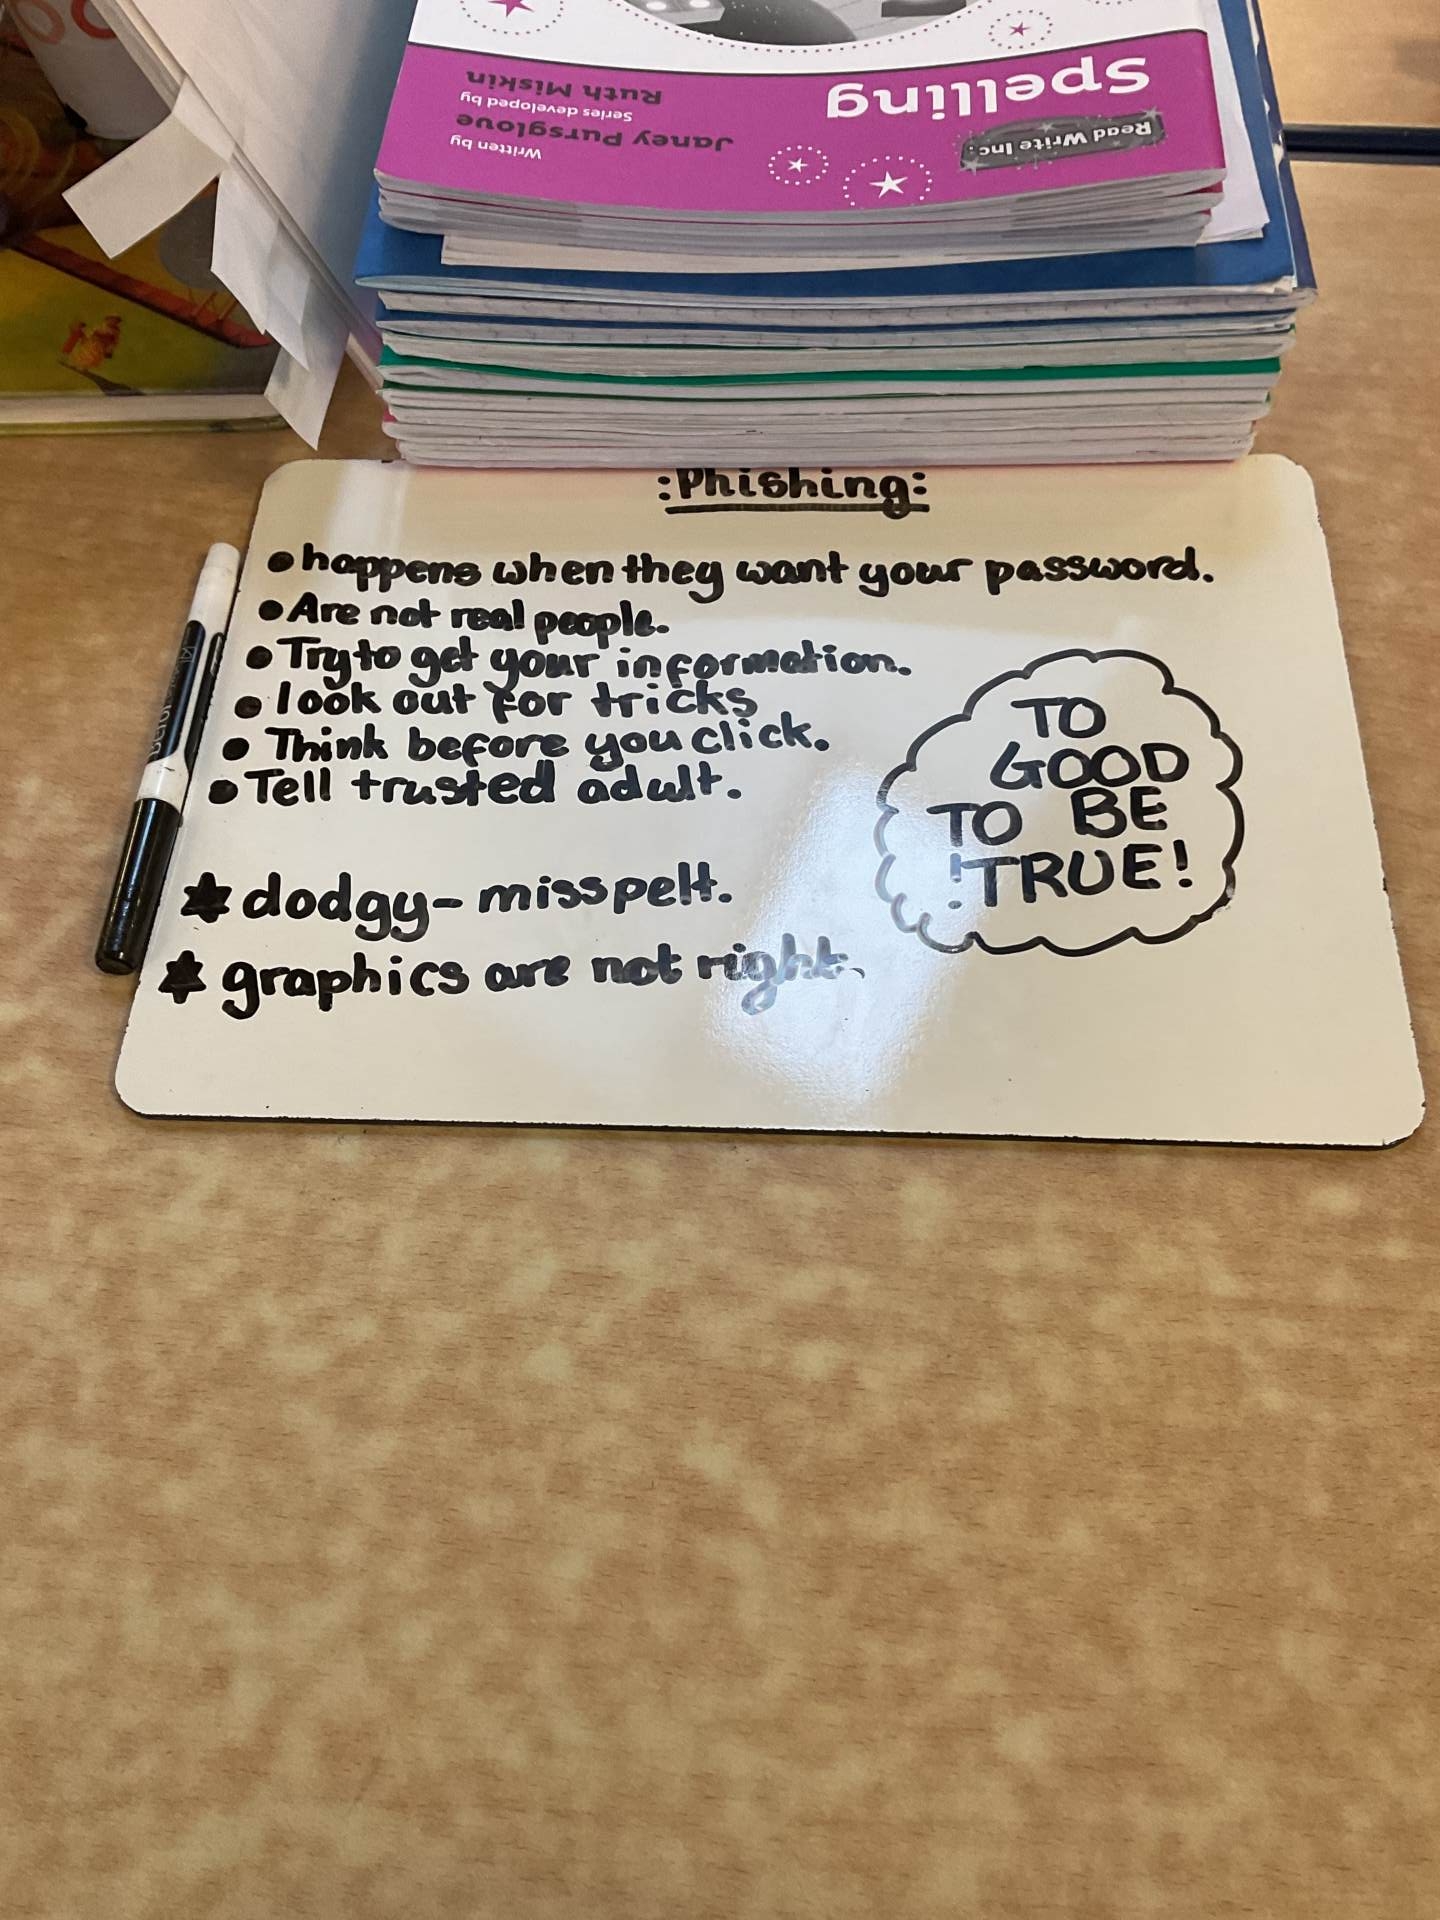 Spelling
Read Write Inc.
Written by
Janey Pursglove
Series developed by
Ruth Miskin
:Phishing:
• happens when they want your password.
• Are not real people.
• Try to get your information.
• look out for tricks
• Think before you click.
• Tell trusted adult.
TO
GOOD
TO BE
!TRUE!
★ dodgy - misspelt.
★ graphics are not right.